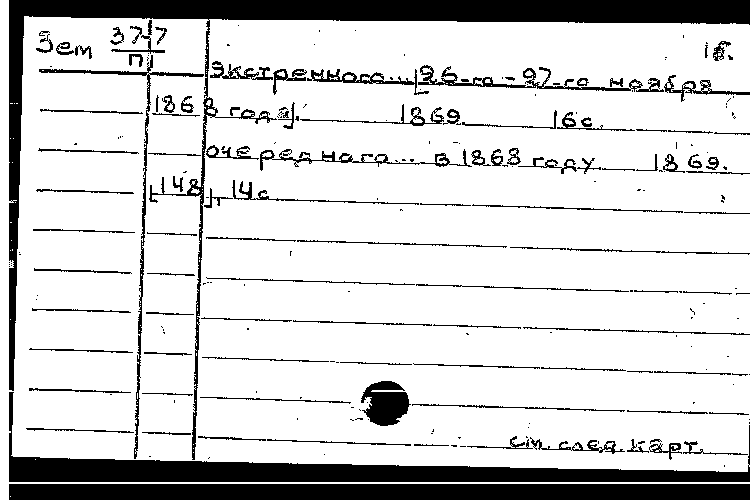 Зем 37-7
п
экстренного... [26-го - 27-го ноября
1868 года]. 1869. 16 с.
очередного... в 1868 году. 1869.
[148], 14 с.
см. след. карт.